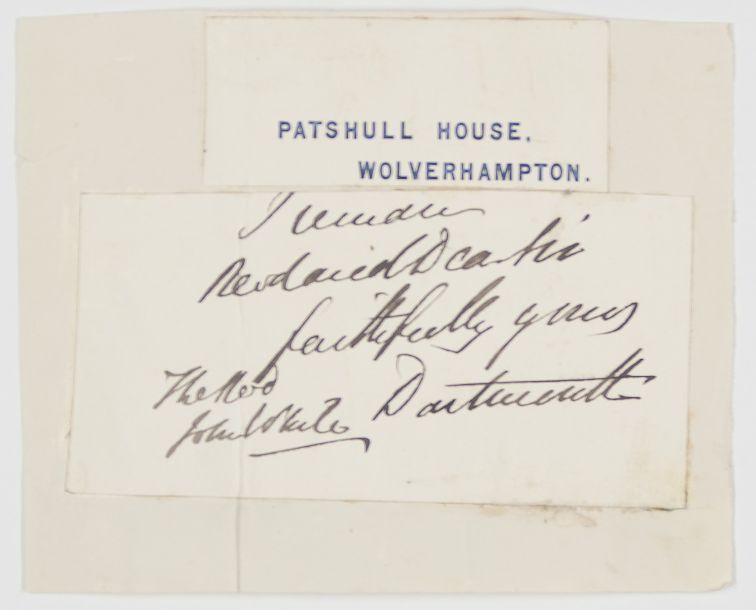 PATSHULL HOUSE.
WOLVERHAMPTON.
I remain
Rev and Dear Sir
faithfully yours
The Revd
John White Dartmouth